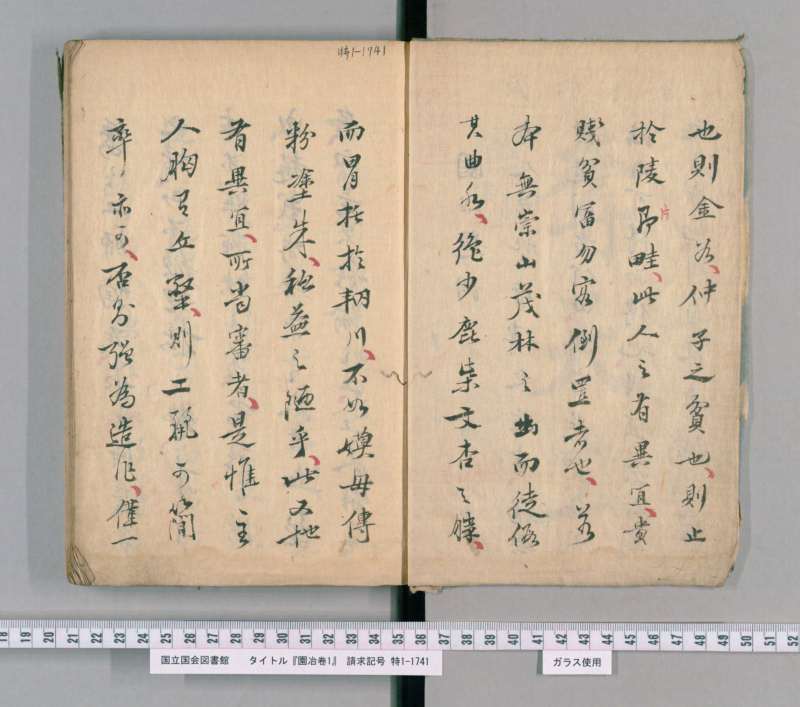 特1-1741
也則金谷、仲子之貧也、則止
於陵片畦、此人之有異宜、貴
賤貧富勿容倒置者也、若
本無崇山茂林之幽而徒假
其曲水、絶少鹿柴文杏之勝、
而冒托於輞川、不如嫫母傅
粉塗朱、秪益之陋乎、此又地
有異宜、所当審者、是惟主
人胸有丘壑、則工麗可簡
率亦可、否則強為造作、僅一
18 19 20 21 22 23 24 25 26 27 28 29 30 31 32 33 34 35 36 37 38 39 40 41 42 43 44 45 46 47 48 49 50 51 52
国立国会図書館 タイトル『園冶巻1』 請求記号 特1-1741
ガラス使用